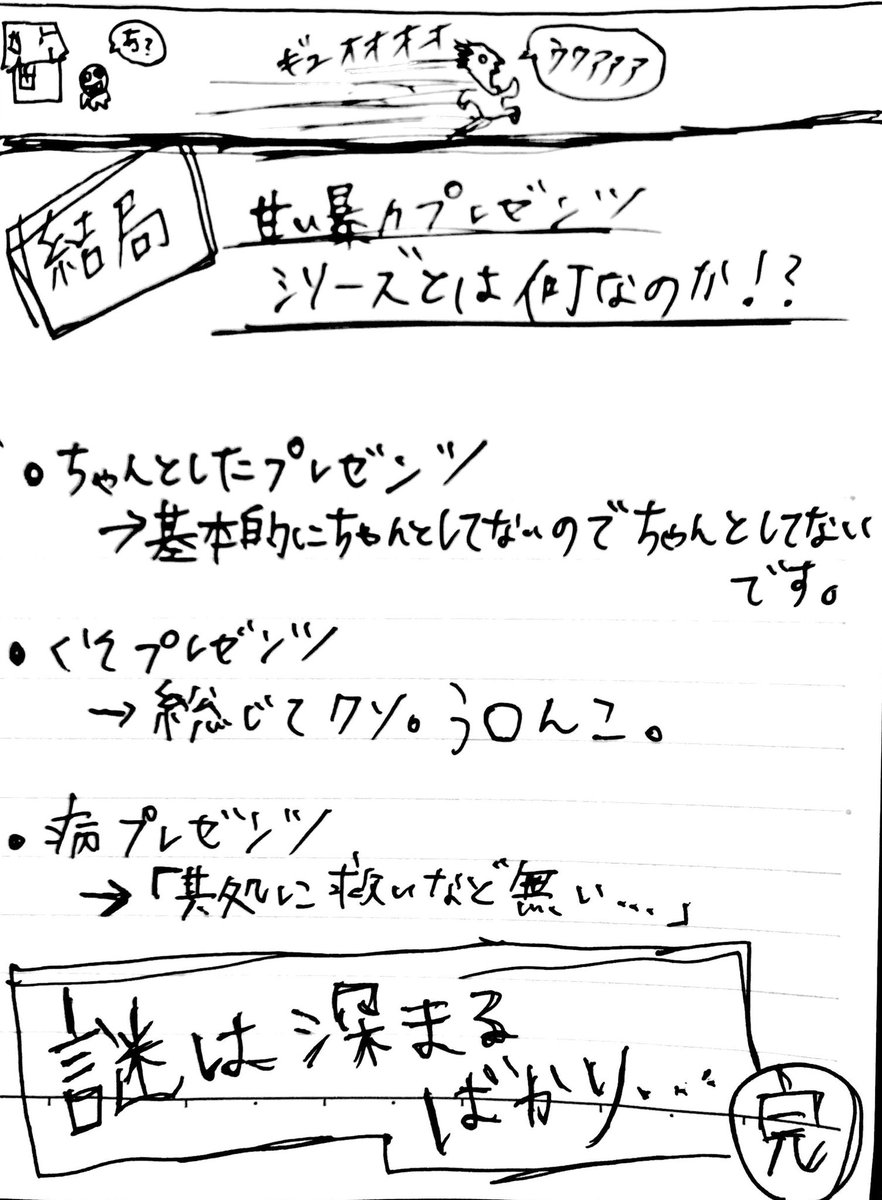 あ?
ギュオオオオ
ウワアアア
結局
甘い暴力プレゼンツ
シリーズとは何なのか!?
・ちゃんとしたプレゼンツ
→基本的にちゃんとしてないのでちゃんとしてない
です。
・くそプレゼンツ
→総じてクソ。う〇んこ。
・病プレゼンツ
→「其処に救いなど無い…」
謎は深まる
ばかり…
完